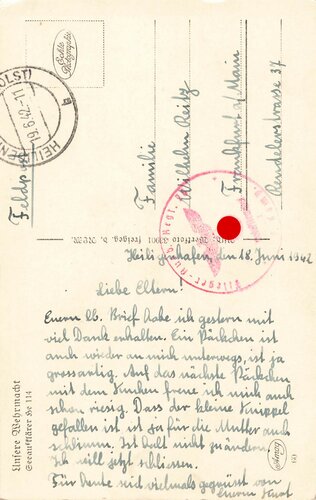 Echte
Photographie
HEILIGENHAFEN
19.6.42.-11
Feldpost
Familie
Wilhelm Reitz
Frankfurt a/ Main
Rendelerstrasse 37
Flieger-Ausb. Regt.
Heiligenhafen, den 18. Juni 1942
Liebe Eltern!
Euern lb. Brief habe ich gestern mit
viel Dank erhalten. Ein Päckchen ist
auch wieder an mich unterwegs, ist ja
grossartig. Auf das nächste Päckchen
mit dem Kuchen freue ich mich auch
schon riesig. Dass der kleine Knippel
gefallen ist ist ja für die Mutter auch
schlimm. Ist halt nicht zu ändern.
Ich will jetzt schliessen.
Für heute seid vielmals gegrüsst von
euerm Kurt
Unsere Wehrmacht
Seeaufklärer He 114